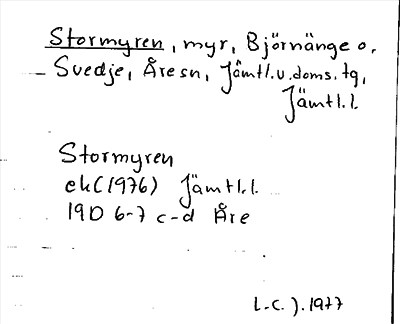 Stormyren, myr, Björnänge o.
Svedje, Åresn, Jämtl.v.doms.tg,
Jämtl.l.
Stormyren
ek(1976) Jämtl.l.
19D 6-7 c-d Åre
L.C.J. 1977